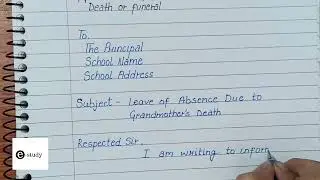 Death or funeral
To,
The Principal
School Name
School Address
Subject - Leave of Absence Due to
Grandmother's Death
Respected Sir,
I am writing to inform
e
study